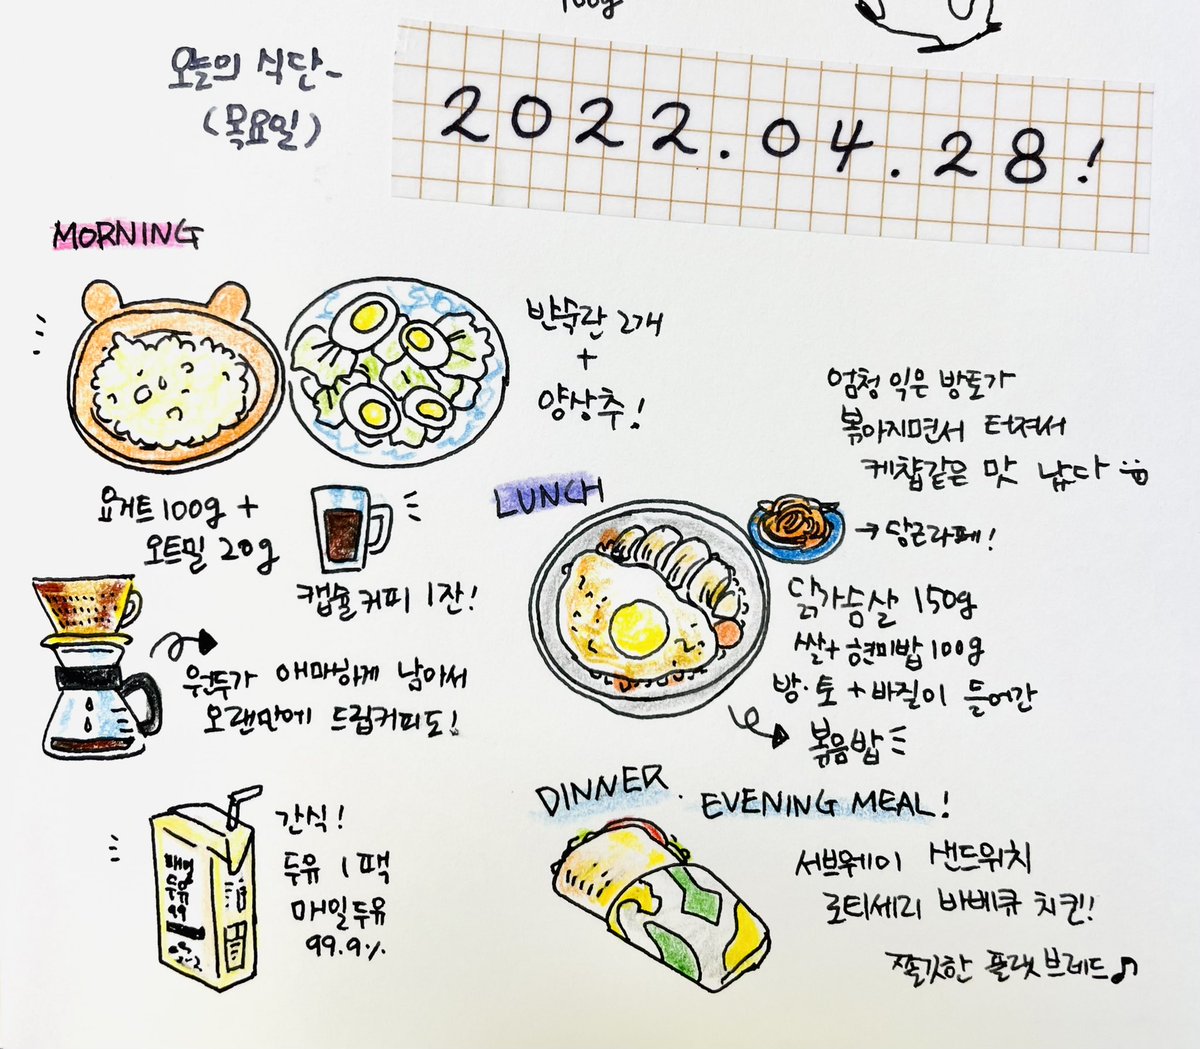 100g
오늘의 식단~
(목요일)
2022.04.28!
MORNING
반숙란 2개
+
양상추!
요거트 100g +
오트밀 20g
캡슐커피 1잔!
원두가 애매하게 남아서
오랜만에 드립커피도!
간식!
두유 1팩
매일두유
99.9%
매일
두유
99
LUNCH
엄청 익은 방토가
볶아지면서 터져서
케챱같은 맛 났다
→ 당근라페!
닭가슴살 150g
쌀+현미밥 100g
방·토 + 바질이 들어간
볶음밥
DINNER.
EVENING MEAL!
서브웨이 샌드위치
로티세리 바베큐 치킨!
쫄깃한 플랫브레드♪